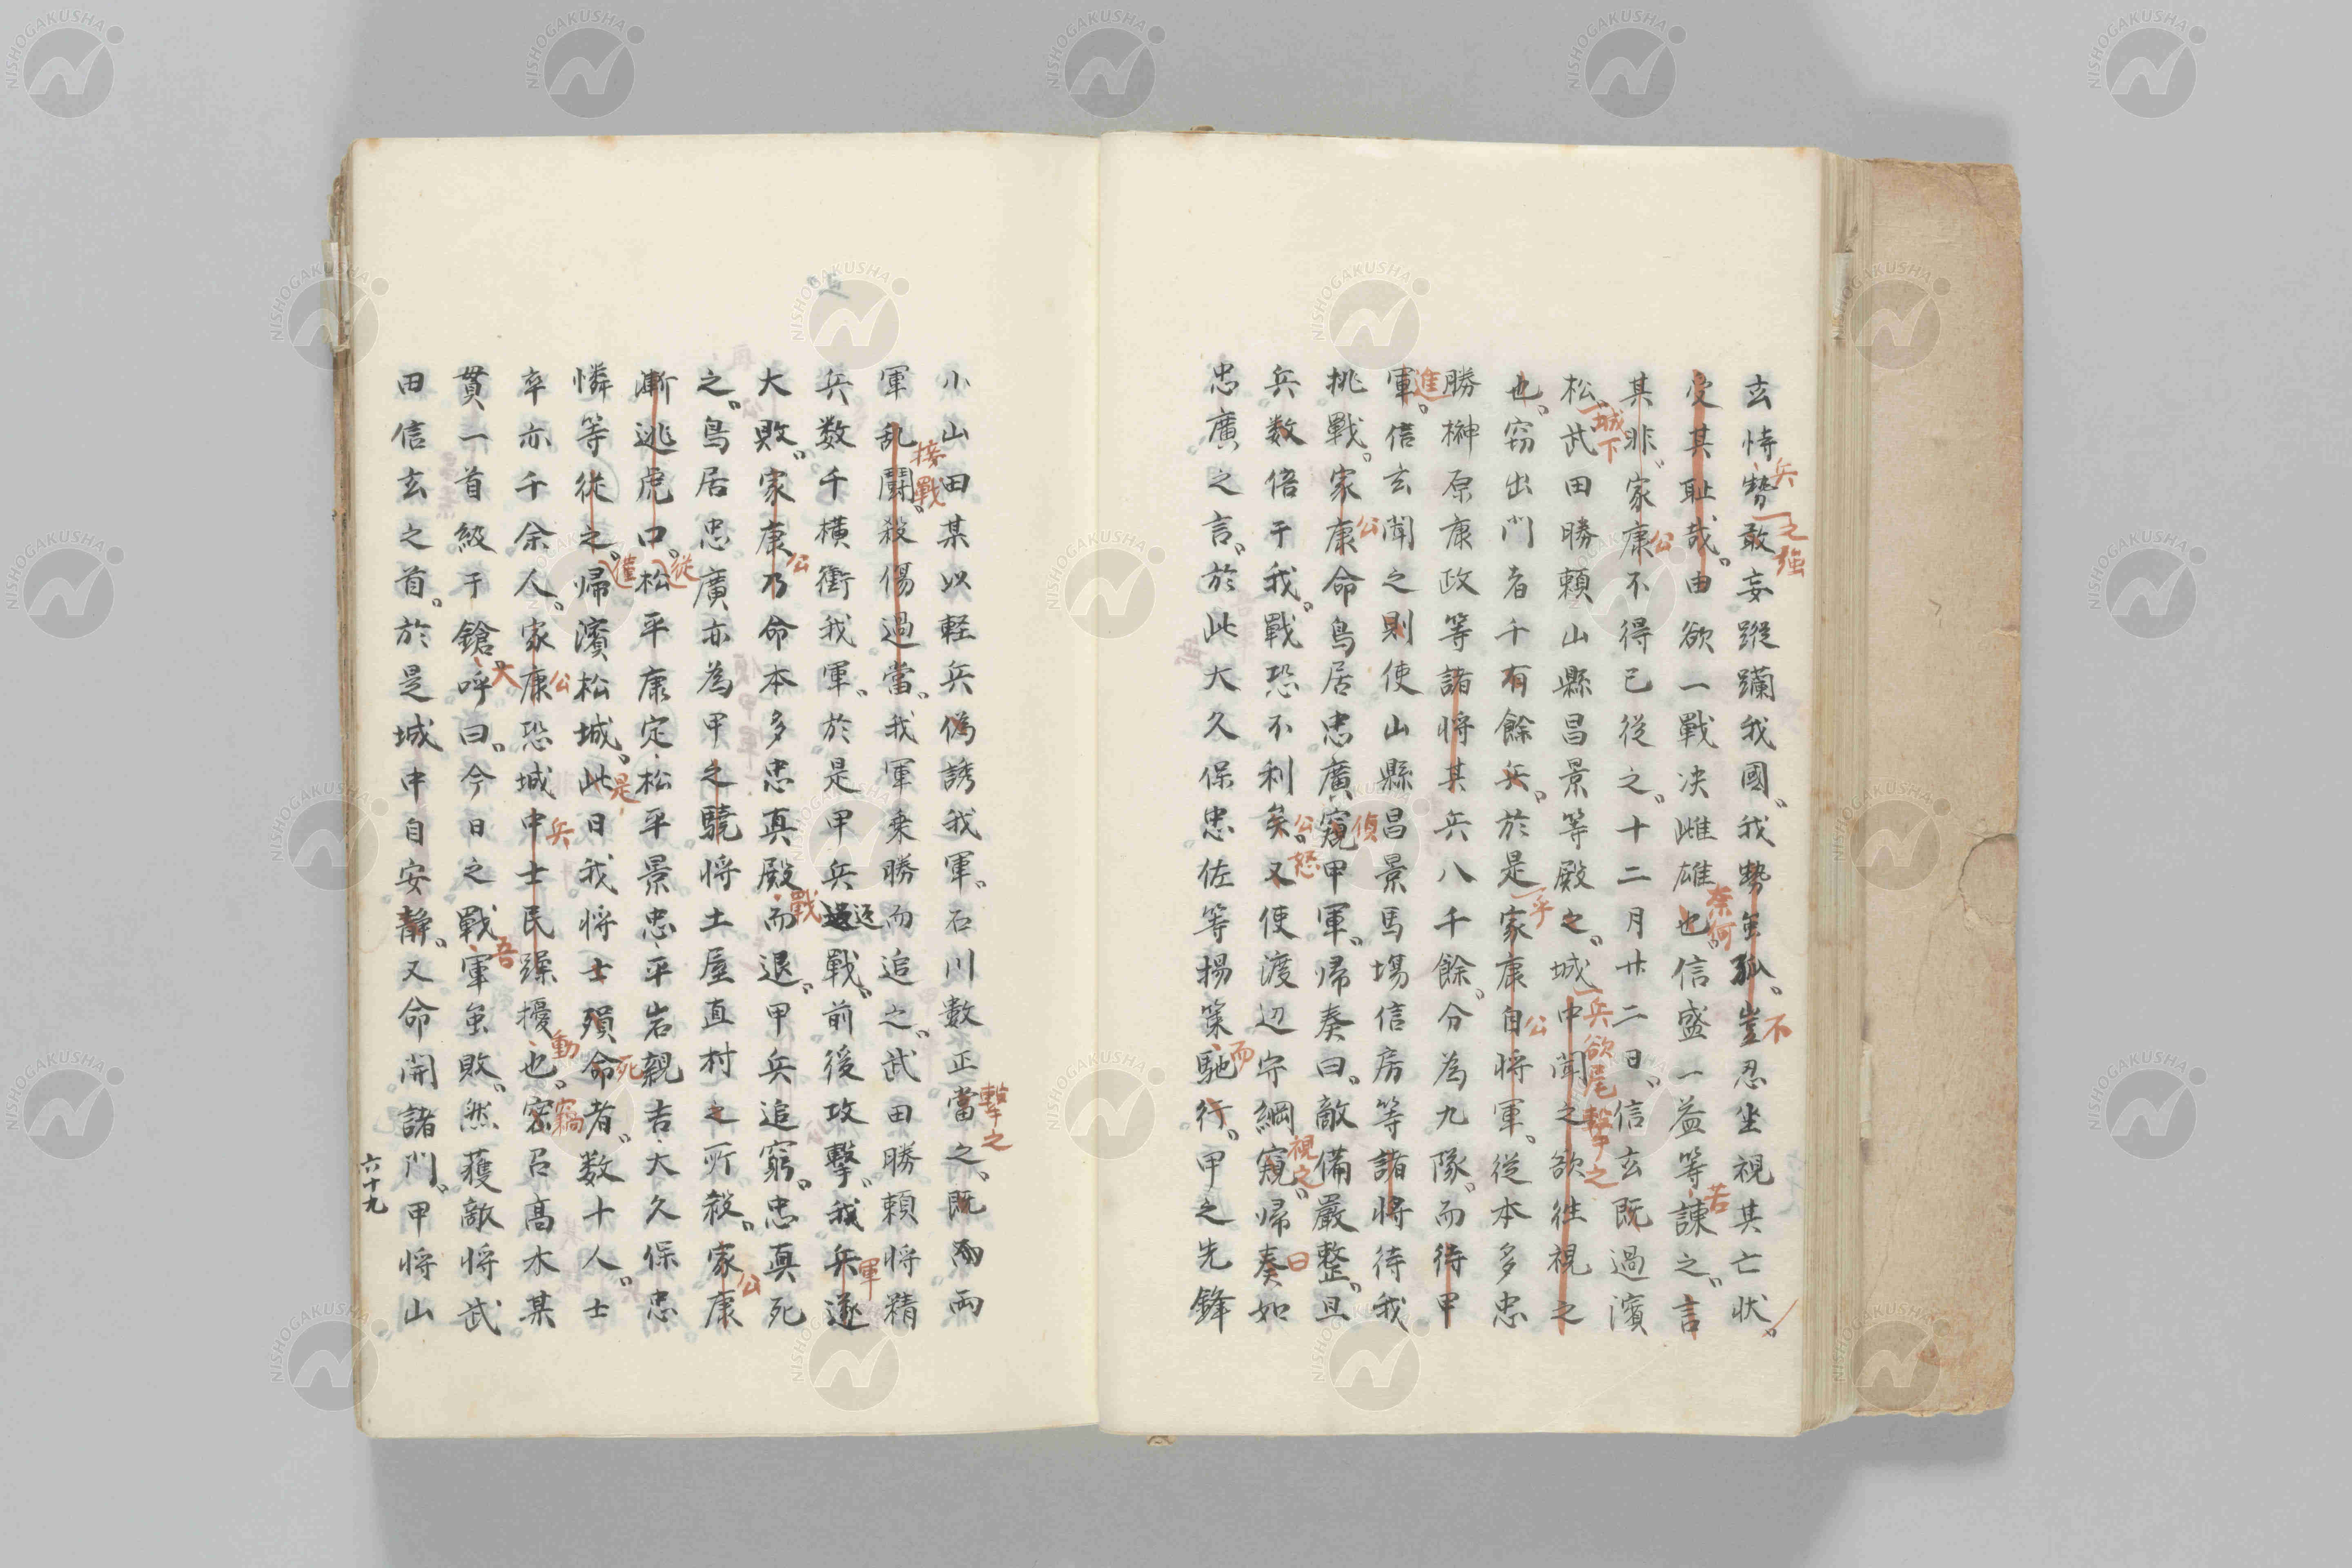 玄恃勢敢妄蹤躙我國。我勢虽孤。豈忍坐視其亡状。
兵
之強
不
受其耻哉。由欲一戰决雌雄也。信盛一益等諫之。言
奈何
苦
其非。家康不得已從之。十二月廿二日。信玄既過濱
公
松。武田勝頼山縣昌景等殿之。城中聞之欲徃視之
城下
兵欲尾擊之
也。窃出門者千有餘兵。於是家康自将軍。從本多忠
乎
公
勝榊原康政等諸将其兵八千餘。分為九隊。而待甲
進
軍。信玄聞之則使山縣昌景馬塲信房等諸将待我
挑戰。家康命鳥居忠廣窺甲軍。帰奏曰。敵備嚴整。且
公
偵
兵数倍于我。戰恐不利矣。又使渡辺守綱窺。帰奏如
公怒
視之
曰
忠廣之言。於此大久保忠佐等揚策馳行。甲之先鋒
而
小山田某以軽兵偽誘我軍。石川數正當之。既而両
擊之
軍乱鬪。殺傷過當。我軍乗勝而追之。武田勝頼将精
接戰
兵数千横衝我軍。於是甲兵返戰。前後攻擊。我兵遂
軍
大敗。家康乃命本多忠真殿而退。甲兵追窮。忠真死
公
戰
之。鳥居忠廣亦為甲之驍将土屋直村之所殺。家康
公
漸逃虎口。松平康定松平景忠平岩親吉大久保忠
從
憐等從之。帰濱松城。此日我将士殞命者。数十人。士
僅
是
死
卒亦千余人。家康恐城中士民躁擾也。密召高木某
公
兵
動
窃
貫一首級于鎗呼曰。今日之戰軍虽敗。然獲敵将武
大
吾
田信玄之首。於是城中自安静。又命開諸門。甲将山
六十九